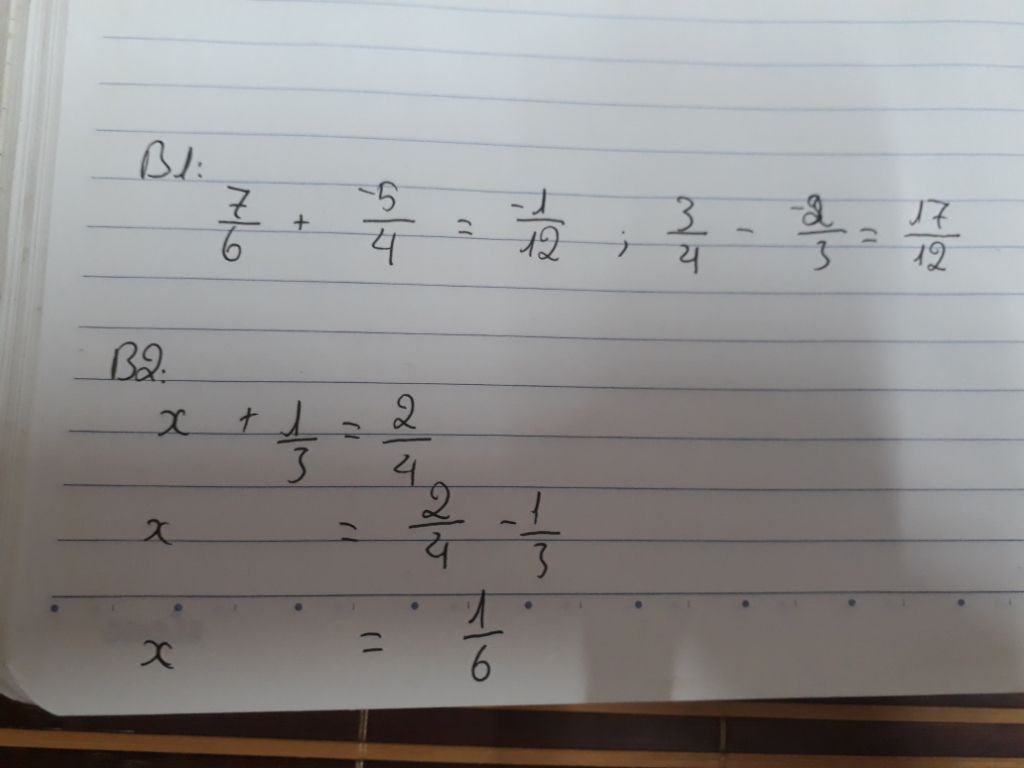 B1:
7/6 + -5/4 = -1/12 ; 3/4 - -2/3 = 17/12
B2:
x + 1/3 = 2/4
x = 2/4 - 1/3
x = 1/6